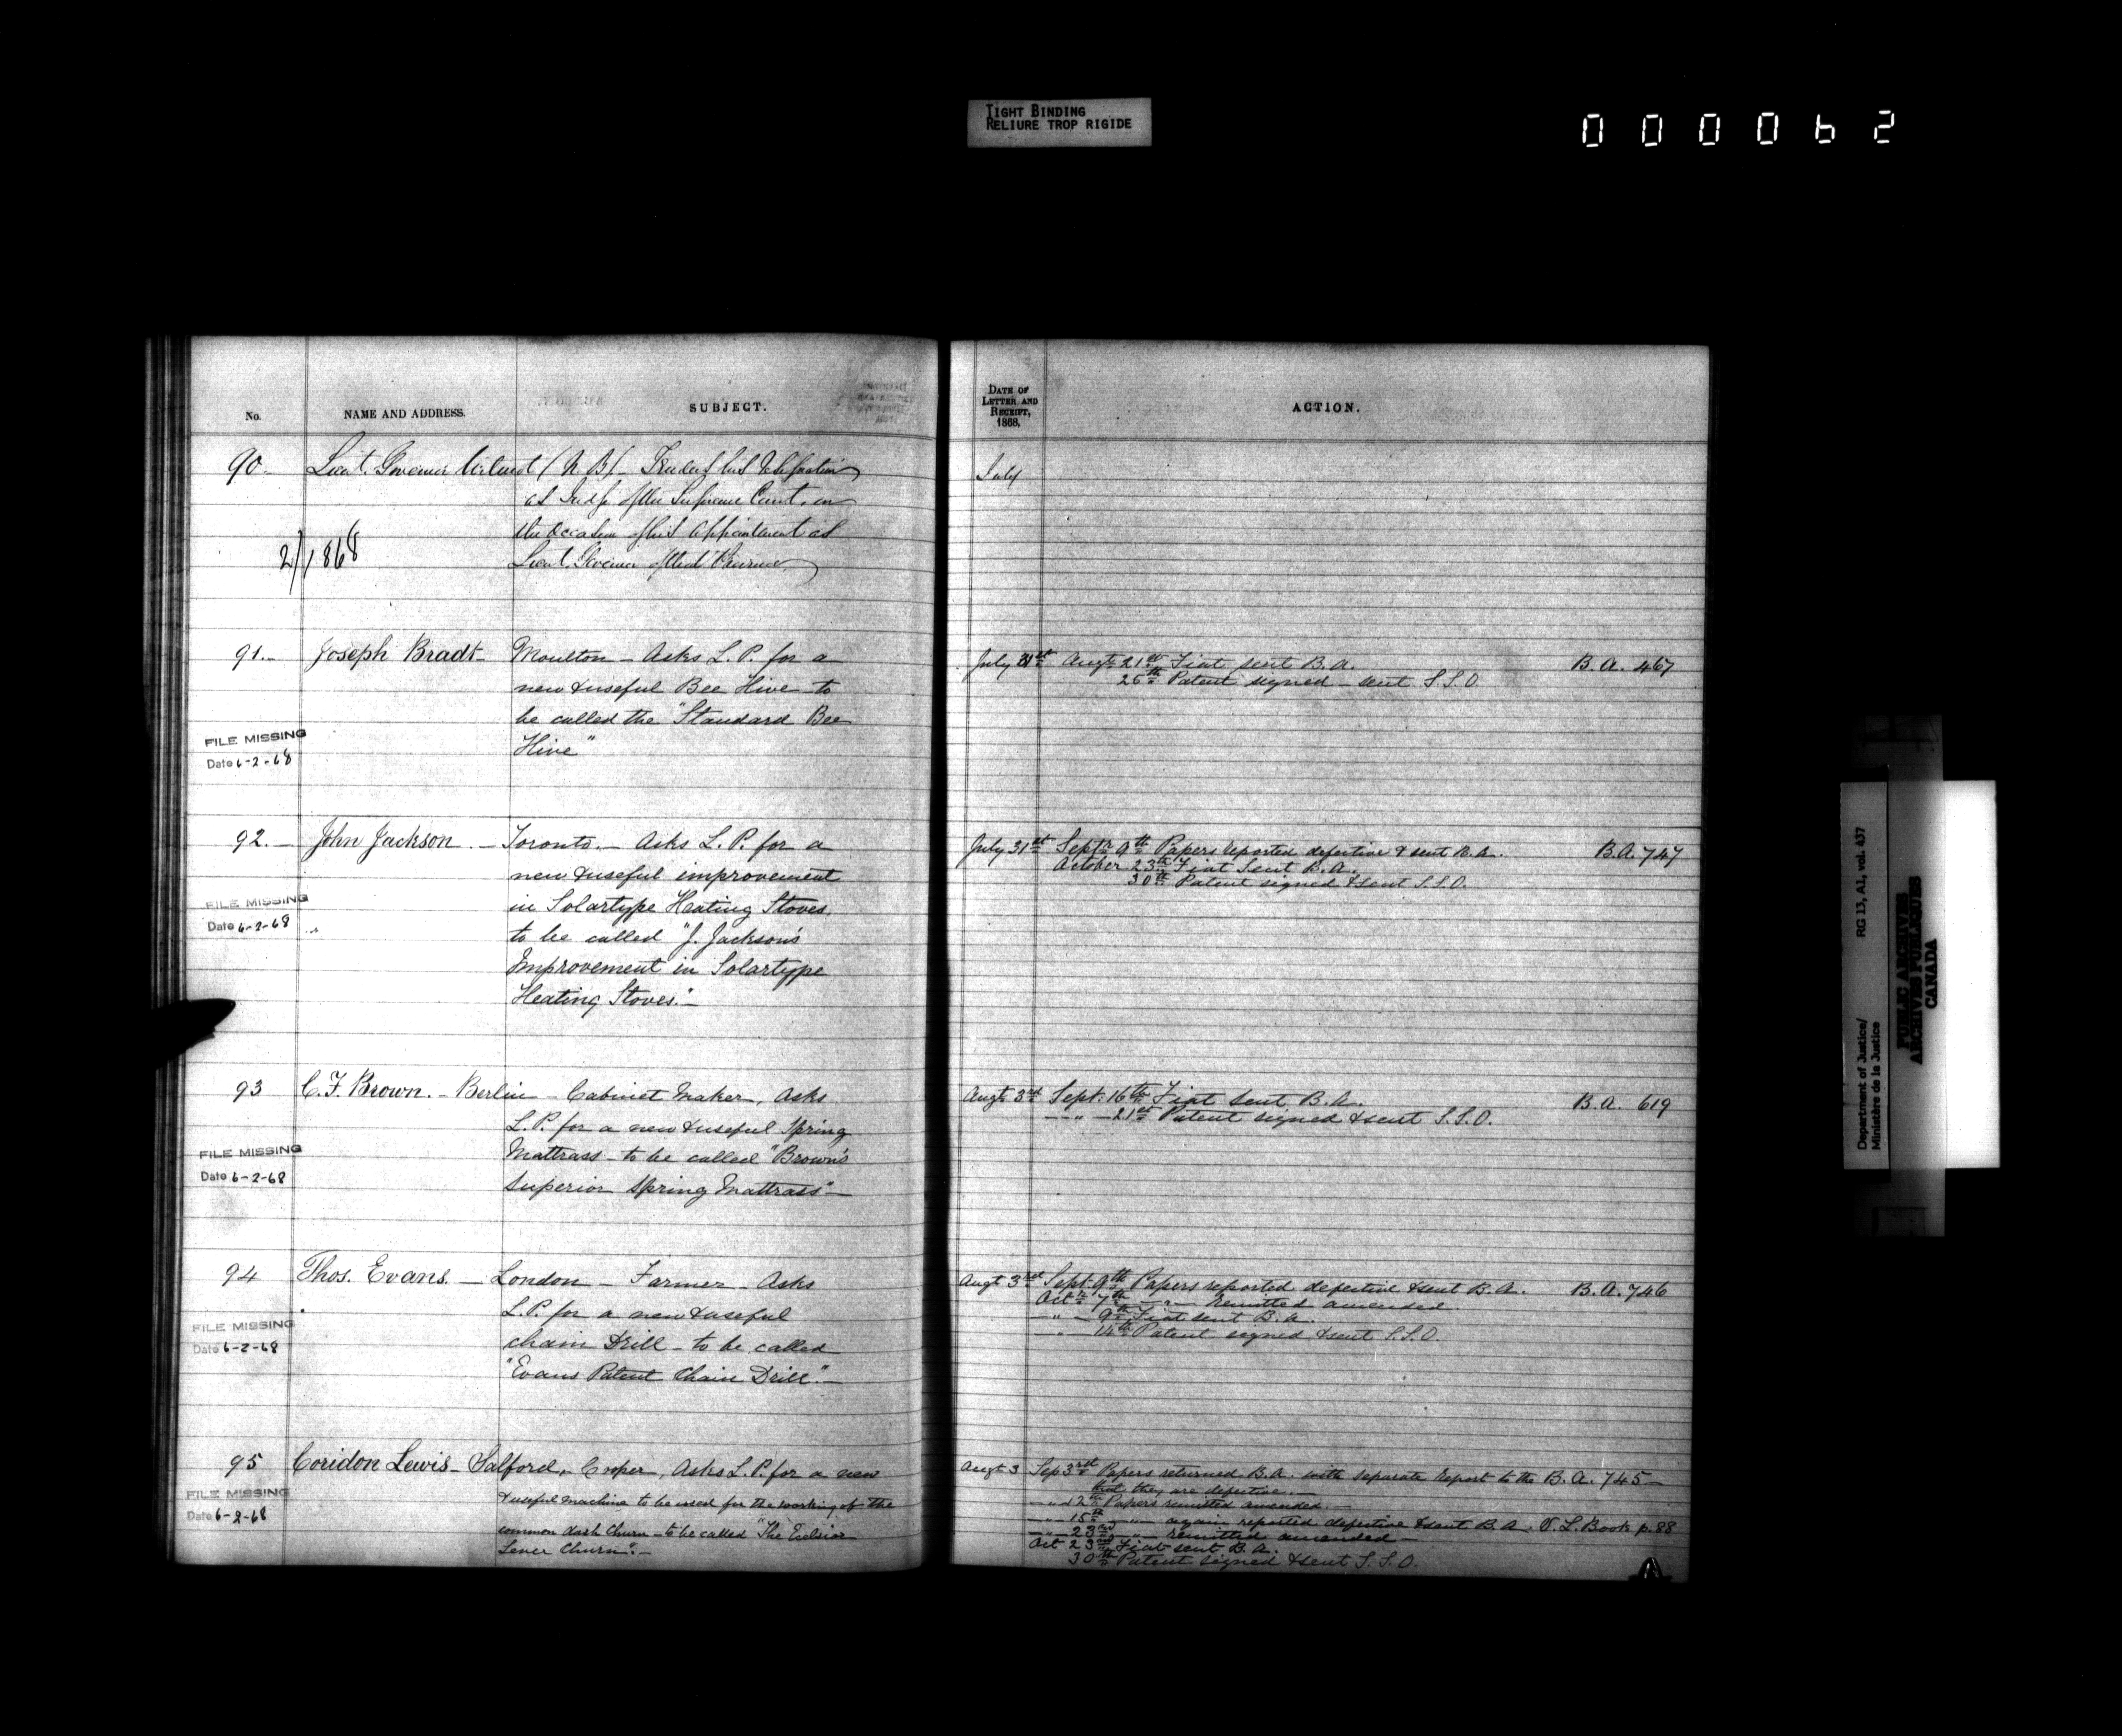 TIGHT BINDING
RELIURE TROP RIGIDE
000062
No.
NAME AND ADDRESS.
SUBJECT.
90 Lieut. Governor Wilmot (N.B) - Tenders his resignation
as Judge of the Supreme Court, on
the occasion of his appointment as
Lieut. Governor of that Province
2/1868
91.- Joseph Bradt - Moulton - Asks L. P. for a
new & useful Bee Hive - to
be called the "Standard Bee
Hive"
FILE MISSING
Date 6-2-68
92. - John Jackson. - Toronto. - Asks L. P. for a
new & useful improvement
in Solartype Heating Stoves,
to be called "J. Jackson's
Improvement in Solartype
Heating Stoves." -
FILE MISSING
Date 6-2-68
93 C. F. Brown. - Berlin - Cabinet Maker, Asks
L. P. for a new & useful Spring
Mattrass - to be called "Brown's
Superior Spring Mattrass" -
FILE MISSING
Date 6-2-68
94 Thos. Evans. - London - Farmer - Asks
L. P. for a new & useful
chain Drill - to be called
"Evans Patent Chain Drill". -
FILE MISSING
Date 6-2-68
95 Coridon Lewis - Salford, - Cooper, Asks L. P. for a new
& useful machine to be used for the working of the
common dash Churn - to be called "The
Lever Churn". -
FILE MISSING
Date 6-2-68
DATE OF
LETTER AND
RECEIPT,
1868.
ACTION.
July
July 31st Augt 21st Fiat sent B. A. B. A. 467
25th Patent signed - sent S. S. O.
July 31st Septr 9th Papers reported defective & sent B. A. B. A. 747
October 23rd Fiat Sent B. A.
30th Patent signed & sent S. S. O.
Augt 3rd Sept. 16th Fiat sent B. A. B. A. 619
- " - 21st Patent signed & sent S. S. O.
Augt 3rd Sept. 9th Papers reported defective & sent B. A. B. A. 746
Octr 7th - " - remitted amended
- " - 9th Fiat sent B. A.
" - 14th Patent signed & sent S. S. O.
Augt 3 Sep 3rd Papers returned B. A. with separate report to the B. A. 745 -
that they are defective. -
- " - 12th Papers remitted amended. -
- " - 15th - " - again reported defective & sent B. A. V. L. Book p. 88
- " - 23rd - " - remitted amended -
Oct 23rd Fiat sent B. A.
30th Patent signed & sent S. S. O.
Department of Justice/
Ministère de la Justice
RG 13, A1, vol. 437
PUBLIC ARCHIVES
ARCHIVES PUBLIQUES
CANADA